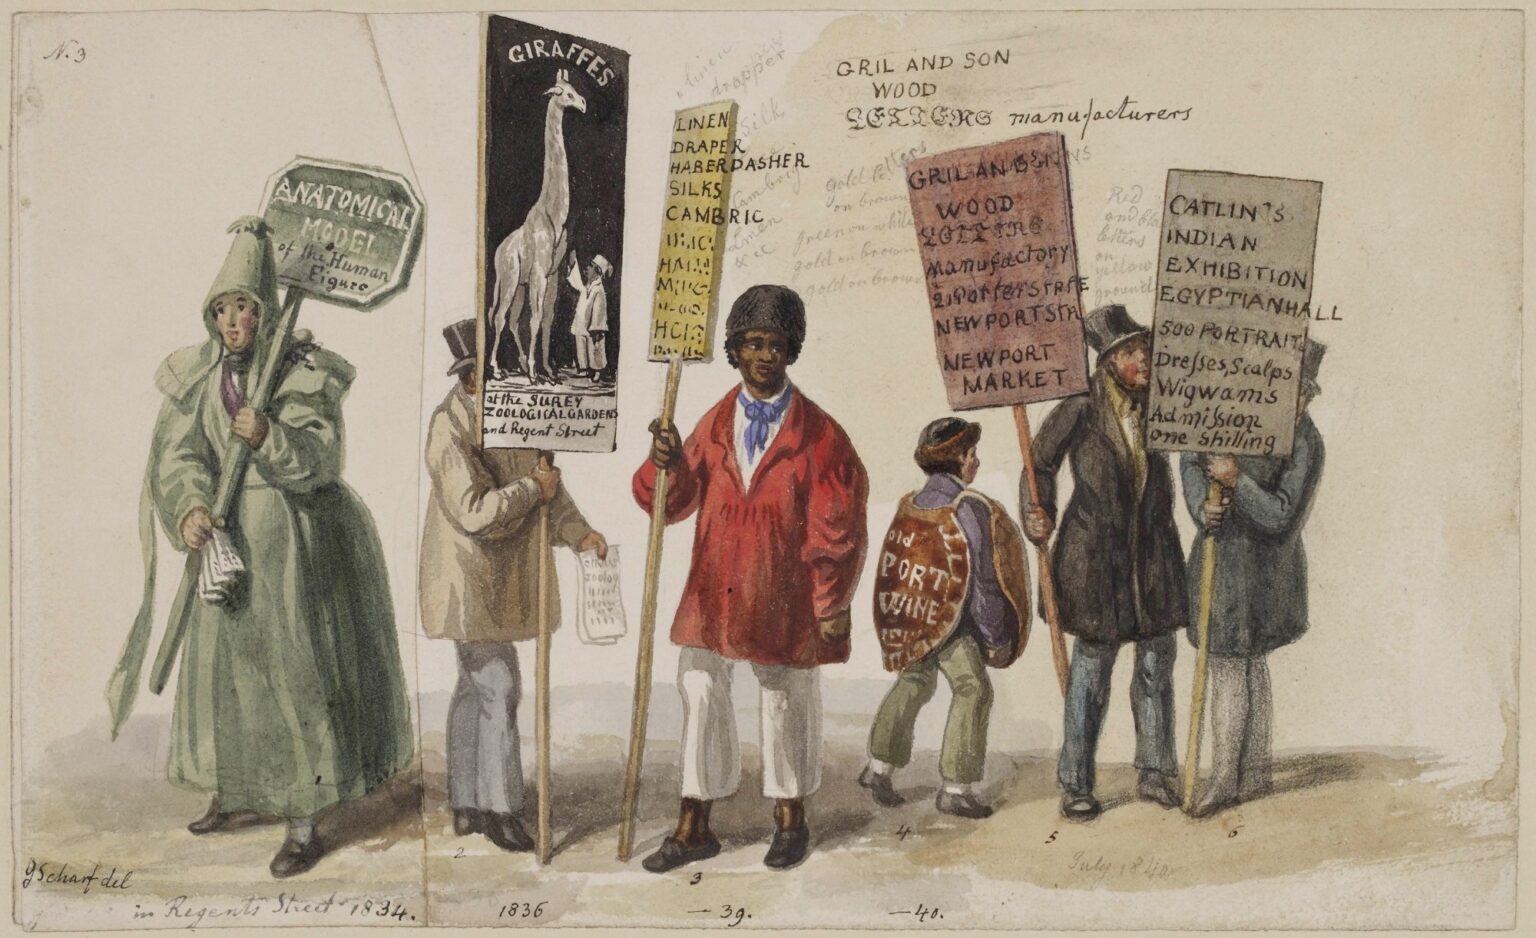 N. 3
ANATOMICAL
MODEL
of the Human
Figure
GIRAFFES
at the SUREY
ZOOLOGICAL GARDENS
and Regent Street
linen
dropper
Silk
LINEN
DRAPER
HABERDASHER
SILKS
CAMBRIC
GRIL AND SON
WOOD
LETTERS manufacturers
gold letters
on brown
green on white
gold on brown
gold on brown
GRIL AN
WOOD
Manufactory
NEWPORT
NEWPORT
MARKET
Red
letters
on
yellow
ground
CATLIN'S
INDIAN
EXHIBITION
EGYPTIAN HALL
500 PORTRAIT
Dresses, Scalps
Wigwams
Admission
one Shilling
old
PORT
WINE
2
3
4
5
6
July 1840
GScharf del
in Regents Street 1834.
1836
— 39.
— 40.